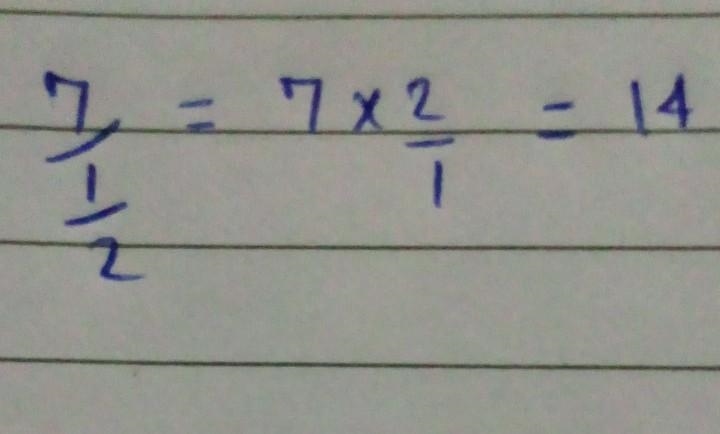 7/1/2 = 7 x 2/1 = 14